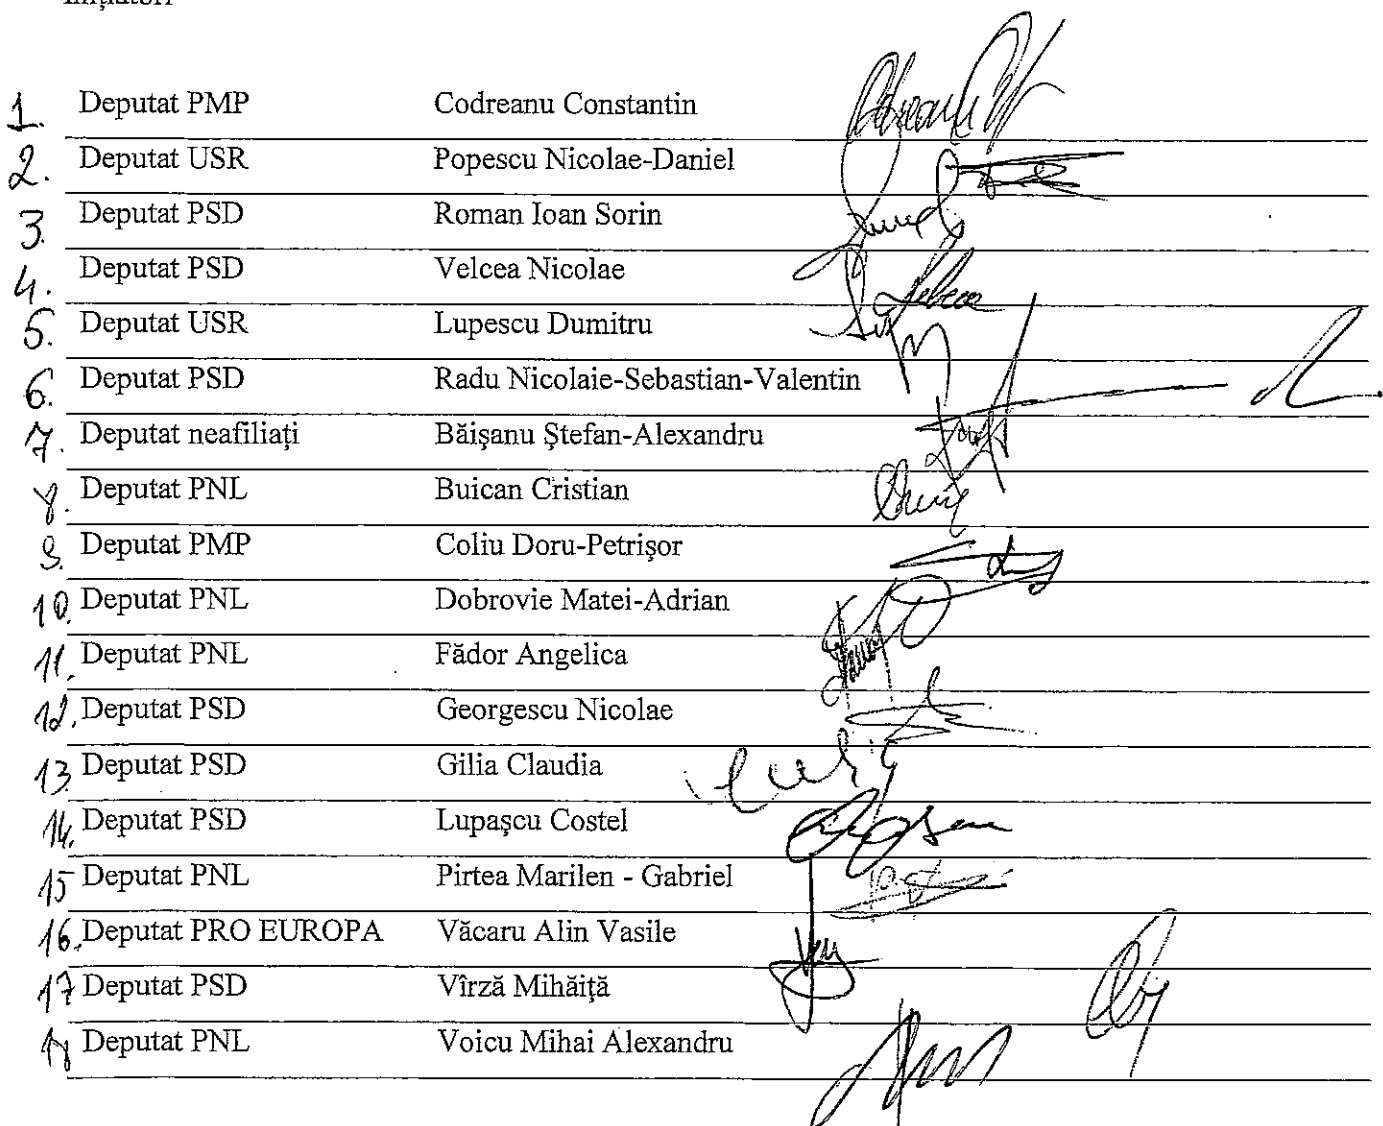 1. Deputat PMP Codreanu Constantin
2. Deputat USR Popescu Nicolae-Daniel
3. Deputat PSD Roman Ioan Sorin
4. Deputat PSD Velcea Nicolae
5. Deputat USR Lupescu Dumitru
6. Deputat PSD Radu Nicolaie-Sebastian-Valentin
7. Deputat neafiliați Băişanu Ştefan-Alexandru
8. Deputat PNL Buican Cristian
9. Deputat PMP Coliu Doru-Petrişor
10. Deputat PNL Dobrovie Matei-Adrian
11. Deputat PNL Fădor Angelica
12. Deputat PSD Georgescu Nicolae
13 Deputat PSD Gilia Claudia
14. Deputat PSD Lupaşcu Costel
15 Deputat PNL Pirtea Marilen - Gabriel
16. Deputat PRO EUROPA Văcaru Alin Vasile
17 Deputat PSD Vîrză Mihăiţă
18 Deputat PNL Voicu Mihai Alexandru